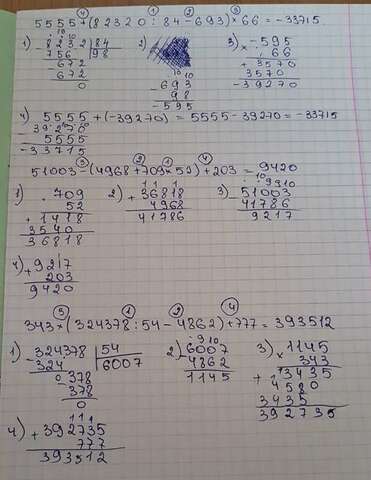 ④ ① ② ③
5555+(82320:84-693)×66=-33715
1) -8232|84
756 |98
672
672
0
2)
-693
98
-595
3) ×-595
66
+3570
3570
-39270
4) 5555+(-39270)=5555-39270=-33715
-39270
5555
-33715
③ ② ① ④
51003-(4968+709×52)+203=9420
1) ×709
52
+1418
3540
36818
2) +36818
4968
41786
3) -51003
41786
9217
4) +9217
203
9420
③ ① ② ④
343×(324378:54-4862)+777=393512
1) -324378|54
324 |6007
0378
378
0
2) -6007
4862
1145
3) ×1145
343
+3435
4580
3435
392735
4) +392735
777
393512